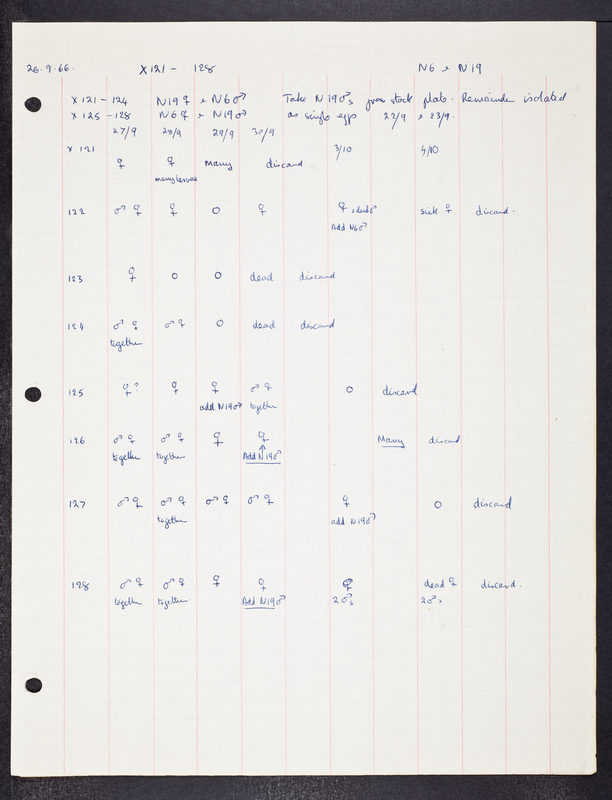 26.9.66. X121 - 128 N6 x N19
X121 - 124 N19♀ x N6♂ Take N19♂s from stock plate. Remainder isolated
X125 - 128 N6♀ x N19♂ as single eggs 22/9 & 23/9.
27/9 28/9 29/9 30/9 3/10 4/10
X121 ♀ ♀ Many discard
many larvae
122 ♂ ♀ ♀ 0 ♀ ♀ + dead ♂ sick ♀ discard.
Add N6♂
123 ♀ 0 0 dead discard
124 ♂ ♀ ♂ ♀ 0 dead discard
together
125 ♀? ♀ ♀ ♂ ♀ 0 discard
add N19♂ together
126 ♂ ♀ ♂ ♀ ♀ ♀ Many discard
together together Add N19♂
127 ♂ ♀ ♂ ♀ ♂ ♀ ♂ ♀ ♀ 0 discard
together add N19♂
128 ♂ ♀ ♂ ♀ ♀ ♀ ♀ dead ♀ discard.
together together Add N19♂ 2♂s 2♂s